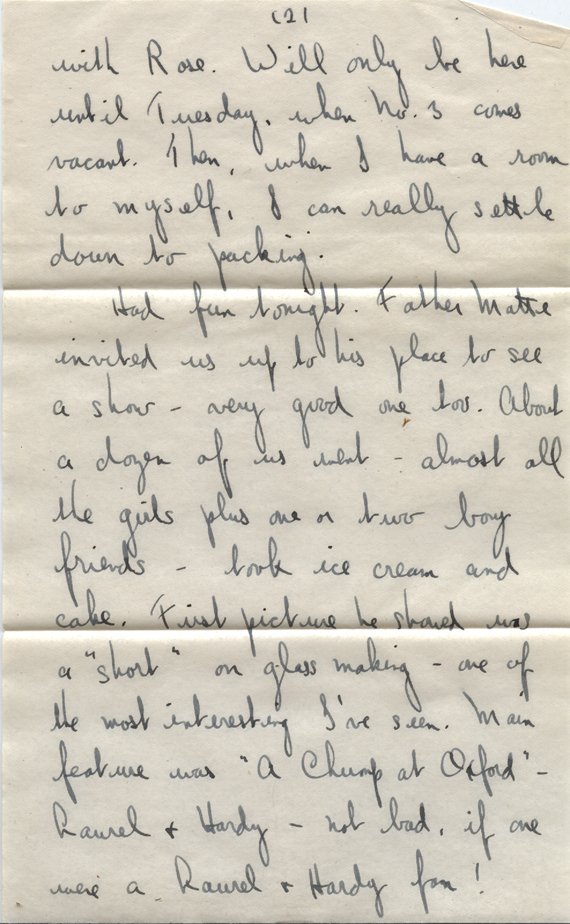 (2)
with Rose. Will only be here
until Tuesday, when No. 3 comes
vacant. Then, when I have a room
to myself, I can really settle
down to packing.
Had fun tonight. Father Mattie
invited us up to his place to see
a show - very good one too. About
a dozen of us went - almost all
the girls plus one or two boy
friends - took ice cream and
cake. First picture he showed was
a "short" on glass making - one of
the most interesting I've seen. Main
feature was "A Chump at Oxford" -
Laurel + Hardy - not bad, if one
were a Laurel + Hardy fan!